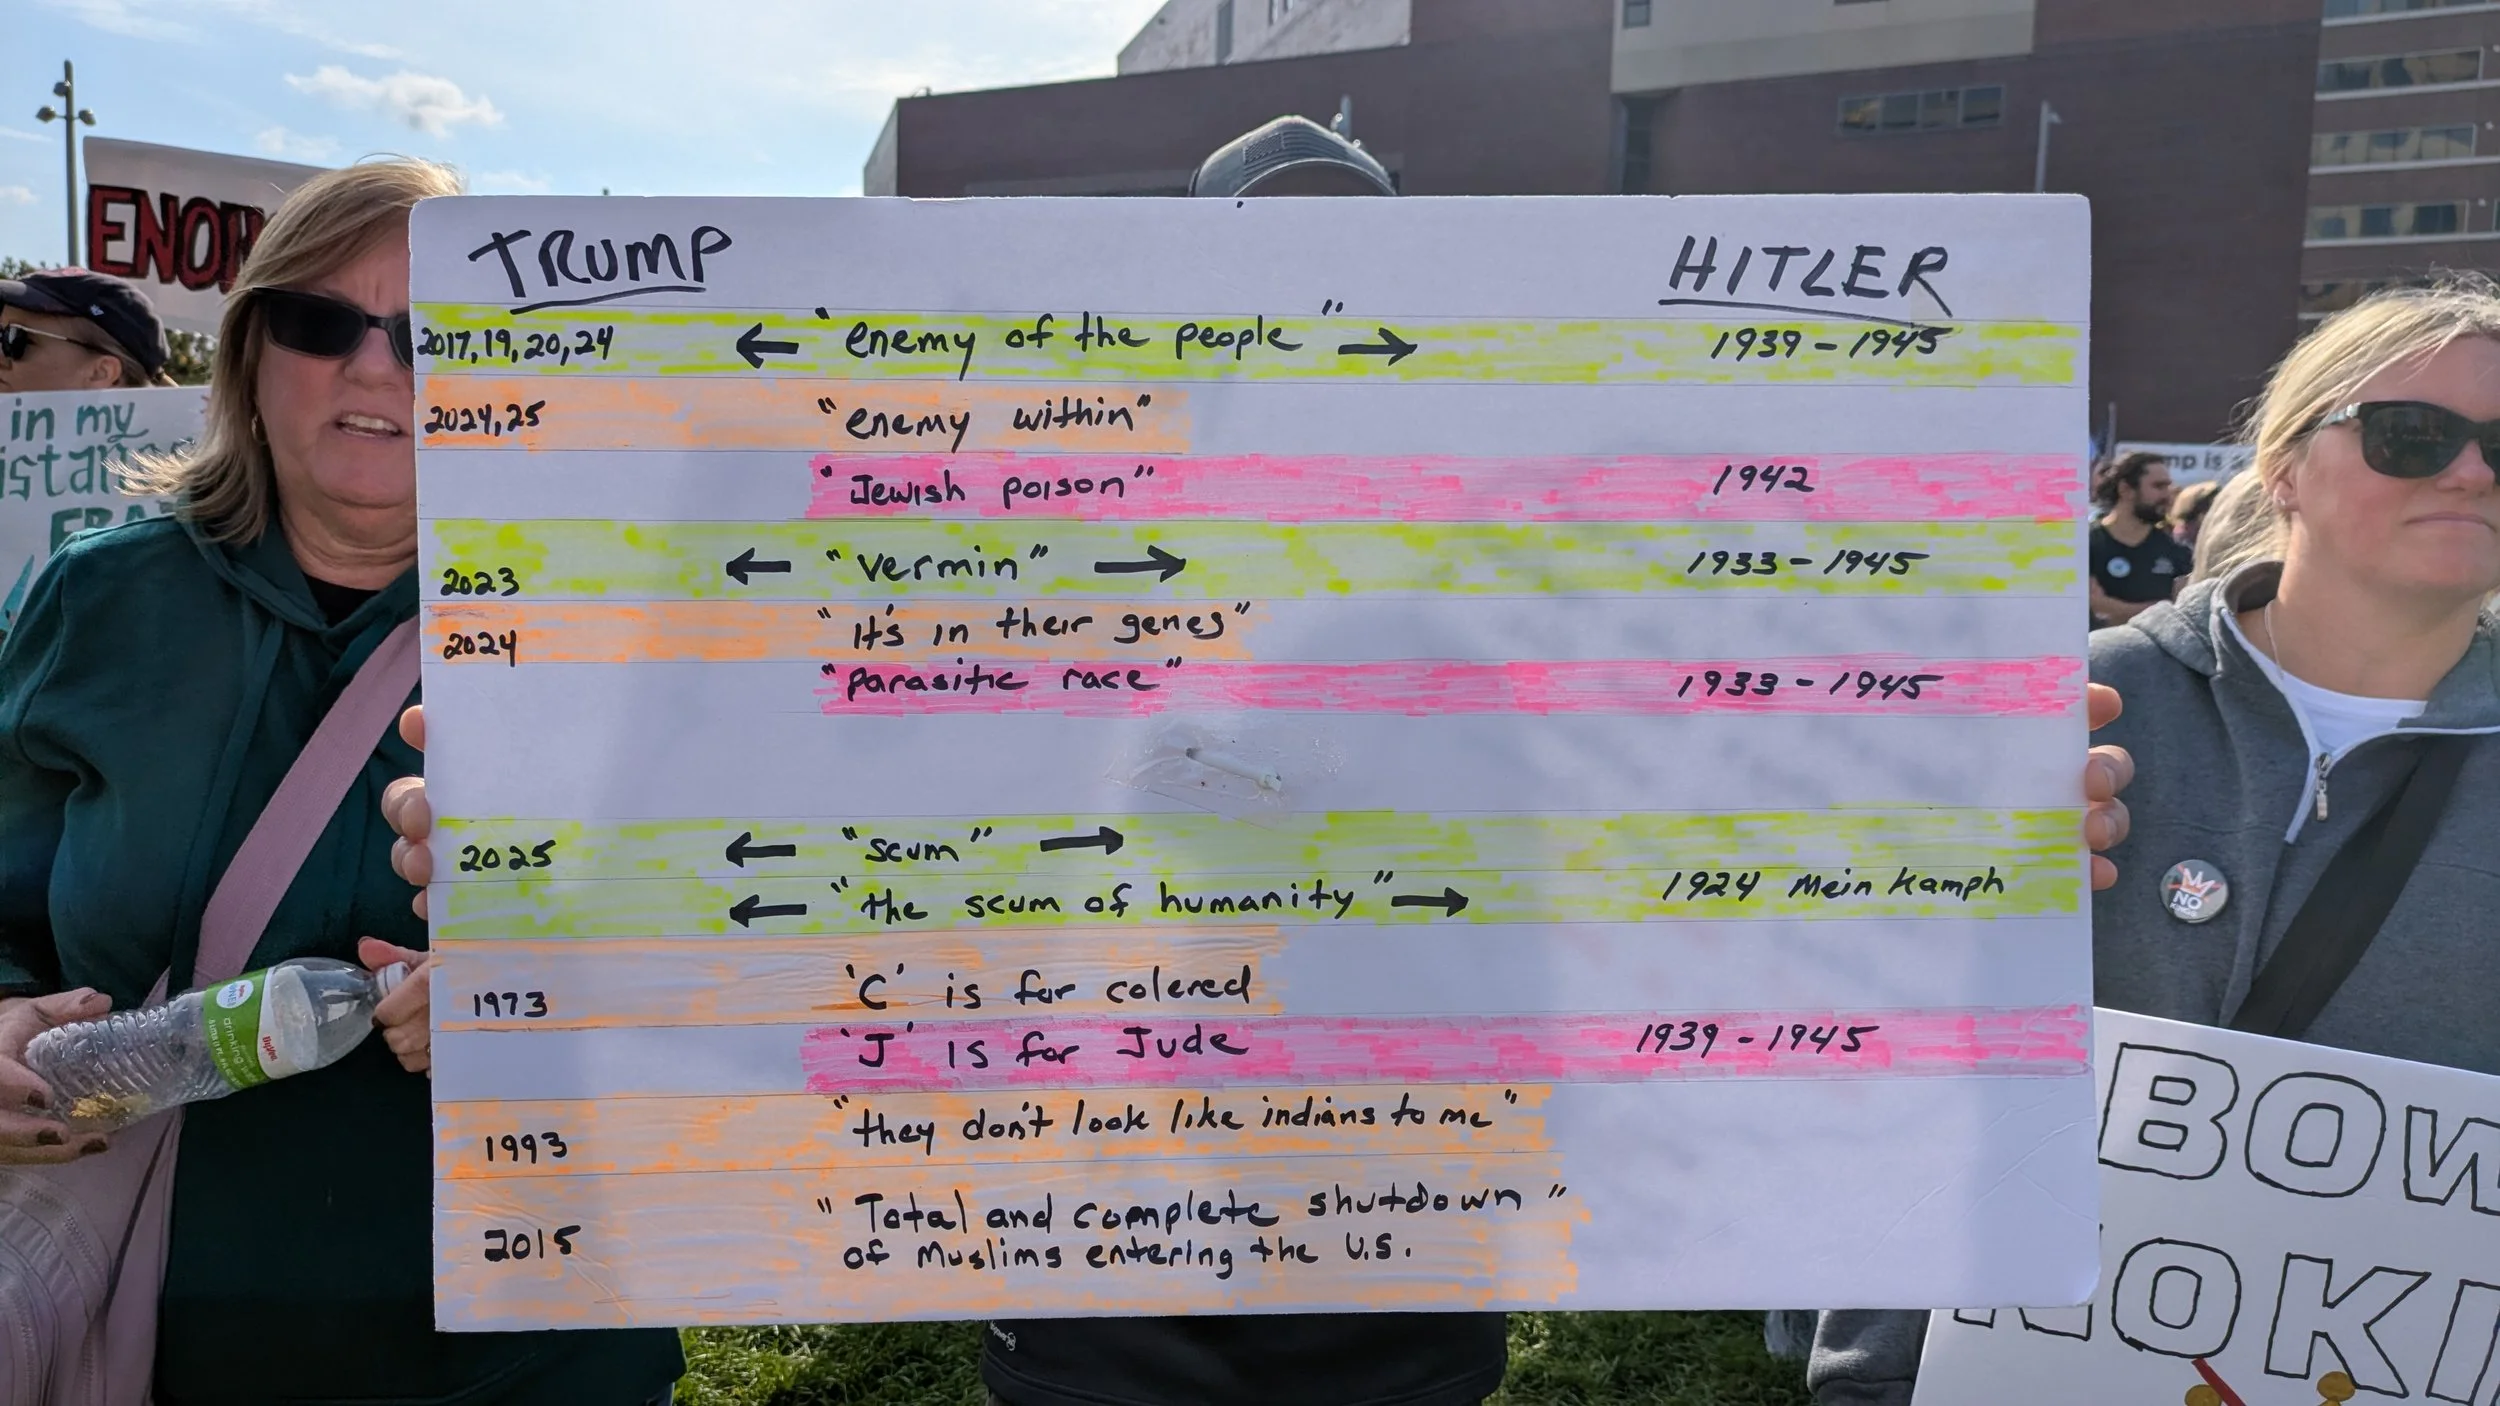 ENO
in my
TRUMP HITLER
2017, 19, 20, 24 ← "enemy of the people" → 1939 - 1945
2024, 25 "enemy within"
"Jewish poison" 1942
2023 ← "vermin" → 1933 - 1945
2024 "It's in their genes"
"parasitic race" 1933 - 1945
2025 ← "scum" →
← "the scum of humanity" → 1924 Mein Kamph
1973 'C' is for colered
'J' is for Jude 1939 - 1945
1993 "they don't look like indians to me"
2015 "Total and complete shutdown"
of Muslims entering the U.S.
NO
drinking
HyVee
BOW
NOKI